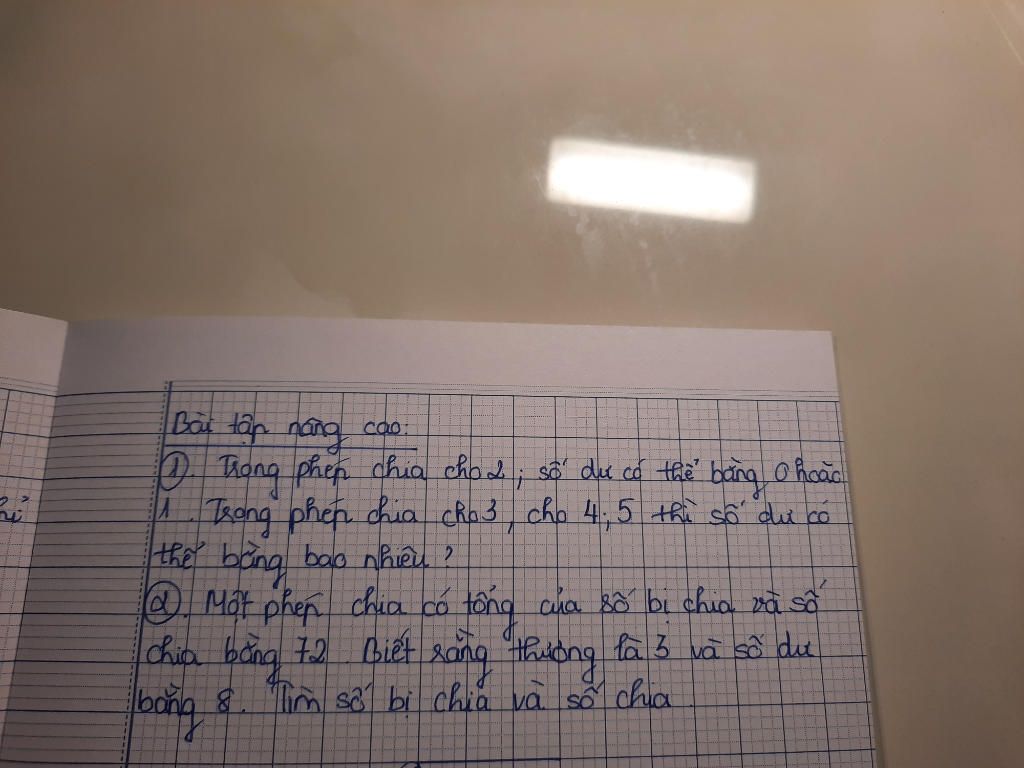 Bài tập nâng cao:
①. Trong phép chia cho 2, số dư có thể bằng 0 hoặc
1. Trong phép chia cho 3, cho 4, 5 thì số dư có
thể bằng bao nhiêu?
②. Một phép chia có tổng của số bị chia và số
chia bằng 72. Biết rằng thương là 3 và số dư
bằng 8. Tìm số bị chia và số chia.